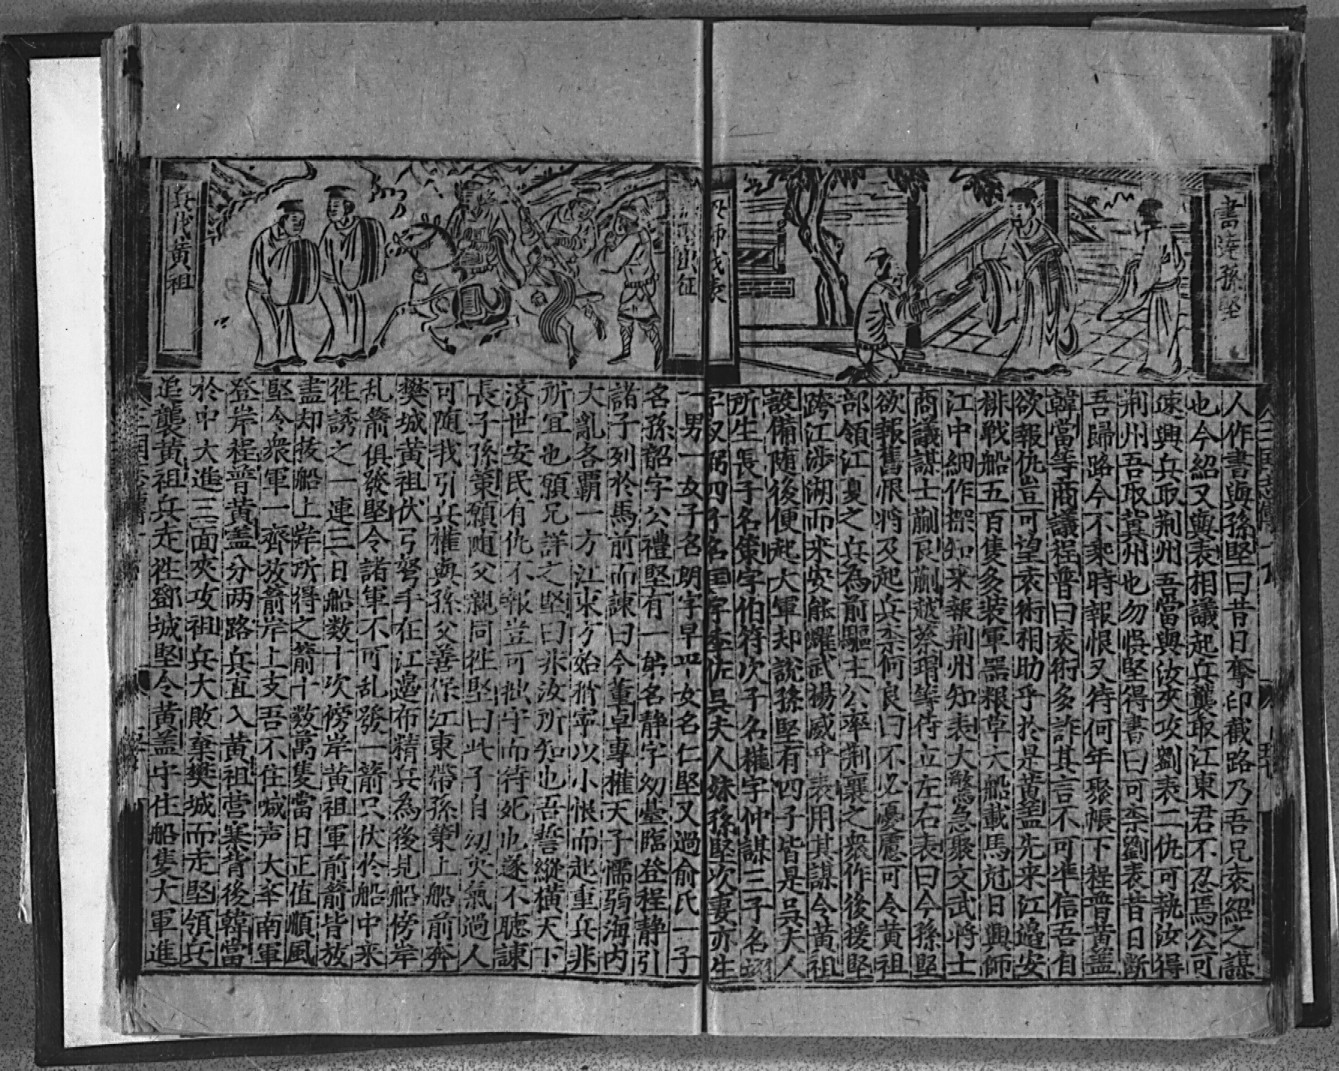 書達孫堅
人作書與孫堅曰昔日奪印截路乃吾兄袁紹之謀
也今紹又與表相議起兵襲取江東君不忍焉公可
速興兵取荆州吾當與汝夾攻劉表二仇可執汝得
荆州吾取冀州也勿悞堅得書曰可柰劉表昔日斷
吾歸路今不乘時報恨又待何年聚帳下程普黄盖
韓當等商議程普曰袁術多詐其言不可凖信吾自
欲報仇豈可望袁術相助乎於是黄盖先來江邉安
排戦船五百隻多装軍器粮草大船載馬尅日興師
江中細作探知来報荆州知表大驚急聚文武將士
商議謀士蒯良蒯越蔡瑁等侍立左右表曰今孫堅
欲報舊恨將及起兵柰何良曰不必憂慮可令黄祖
部領江夏之兵為前驅主公率荆襄之衆作後援堅
跨江涉湖而来安能耀武揚威乎表用其謀令黄祖
設備随後便起大軍却說孫堅有四子皆是吳夫人
所生長子名策字伯符次子名權字仲謀三子名翊
字叔弼四子名匡字季佐吳夫人妹孫堅次妻亦生
一男一女子名朗字早安女名仁堅又過俞氏一子
名孫韶字公禮堅有一弟名静字幼臺臨登程静引
諸子列於馬前而諌曰今董卓專權天子懦弱海内
大亂各霸一方江東方始稍寧以小恨而起重兵非
所宜也願兄詳之堅曰非汝所知也吾誓縱横天下
済世安民有仇不報豈可拙守而待死也遂不聽諌
長子孫策願随父親同徃堅曰此子自幼英氣過人
可随我引兵權與孫父善保江東帶孫策上船前奔
樊城黄祖伏弓弩手在江邉布精兵為後見船傍岸
乱箭俱發堅令諸軍不可乱發一箭只伏於船中来
徃誘之一連三日船数十次傍岸黄祖軍前箭皆放
盡却拔船上岸所得之箭十数萬隻當日正值順風
堅令衆軍一齊放箭岸上支吾不住喊声大举南軍
登岸程普黄盖分两路兵直入黄祖营寨背後韓當
於中大進三面夾攻祖兵大敗棄樊城而走堅領兵
追襲黄祖兵走徃鄧城堅令黄盖守住船隻大軍進
兵伐黄祖